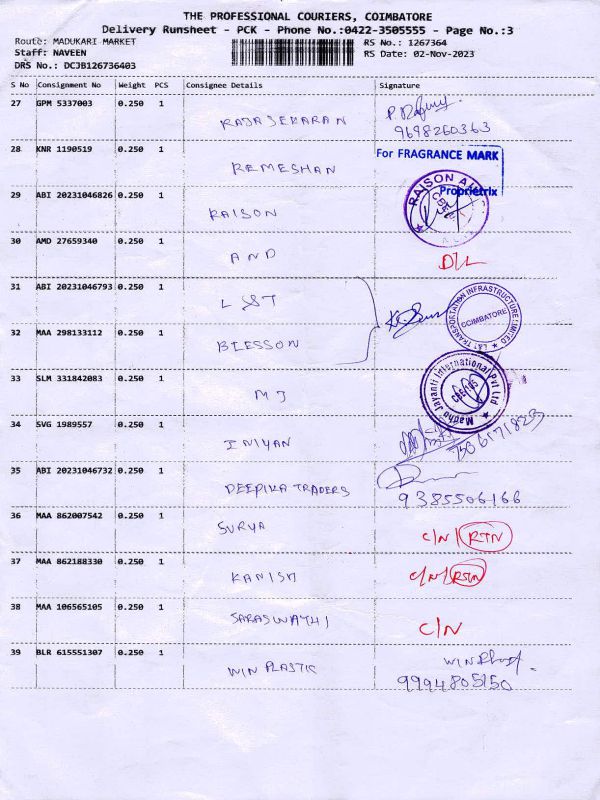 THE PROFESSIONAL COURIERS, COIMBATORE
Delivery Runsheet - PCK - Phone No.:0422-3505555 - Page No.:3
Route: MADUKARI MARKET RS No.: 1267364
Staff: NAVEEN RS Date: 02-Nov-2023
DRS No.: DCJB126736403
S No Consignment No Weight PCS Consignee Details Signature
27 GPM 5337003 0.250 1 RAJASEKARAN
9698260363
28 KNR 1190519 0.250 1 REMESHAN For FRAGRANCE MARK
Proprietrix
29 ABI 20231046826 0.250 1 RAISON RAISON
30 AMD 27659340 0.250 1 AND D/L
31 ABI 20231046793 0.250 1 L&T
L&T TRANSPORTATION INFRASTRUCTURE LIMITED
COIMBATORE
32 MAA 298133112 0.250 1 BLESSON
33 SLM 331842083 0.250 1 MJ Madha Jayanti International Pvt Ltd
34 SVG 1989557 0.250 1 INIYAN
35 ABI 20231046732 0.250 1 DEEPIKA TRADERS
9385506166
36 MAA 862007542 0.250 1 SURYA C/N/RTN
37 MAA 862188330 0.250 1 KANISH C/N/RTN
38 MAA 106565105 0.250 1 SARASWATHI C/N
39 BLR 615551307 0.250 1 WIN PLASTIC WIN
9994805150